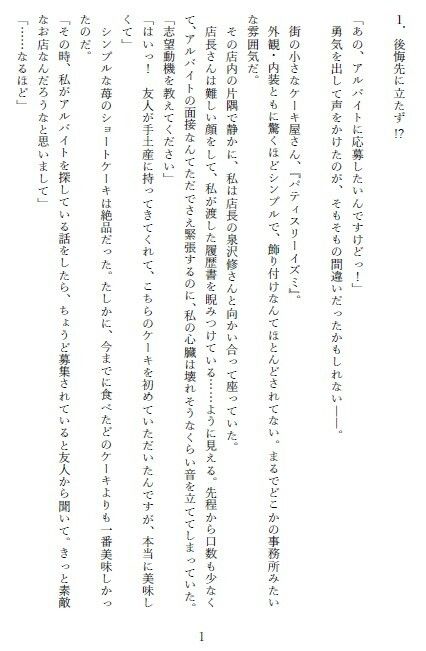 1. 後悔先に立たず !?
「あの、アルバイトに応募したいんですけどっ！」
勇気を出して声をかけたのが、そもそもの間違いだったかもしれない――。
街の小さなケーキ屋さん、『パティスリーイズミ』。
外観・内装ともに驚くほどシンプルで、飾り付けなんてほとんどされてない。まるでどこかの事務所みたい
な雰囲気だ。
その店内の片隅で静かに、私は店長の泉沢修さんと向かい合って座っていた。
店長さんは難しい顔をして、私が渡した履歴書を睨みつけている……ように見える。先程から口数も少なく
て、アルバイトの面接なんてただでさえ緊張するのに、私の心臓は壊れそうなくらい音を立ててしまっていた。
「志望動機を教えてください」
「はいっ！　友人が手土産に持ってきてくれて、こちらのケーキを初めていただいたんですが、本当に美味し
くて」
シンプルな苺のショートケーキは絶品だった。たしかに、今までに食べたどのケーキよりも一番美味しかっ
たのだ。
「その時、私がアルバイトを探している話をしたら、ちょうど募集されていると友人から聞いて。きっと素敵
なお店なんだろうなと思いまして」
「……なるほど」
1